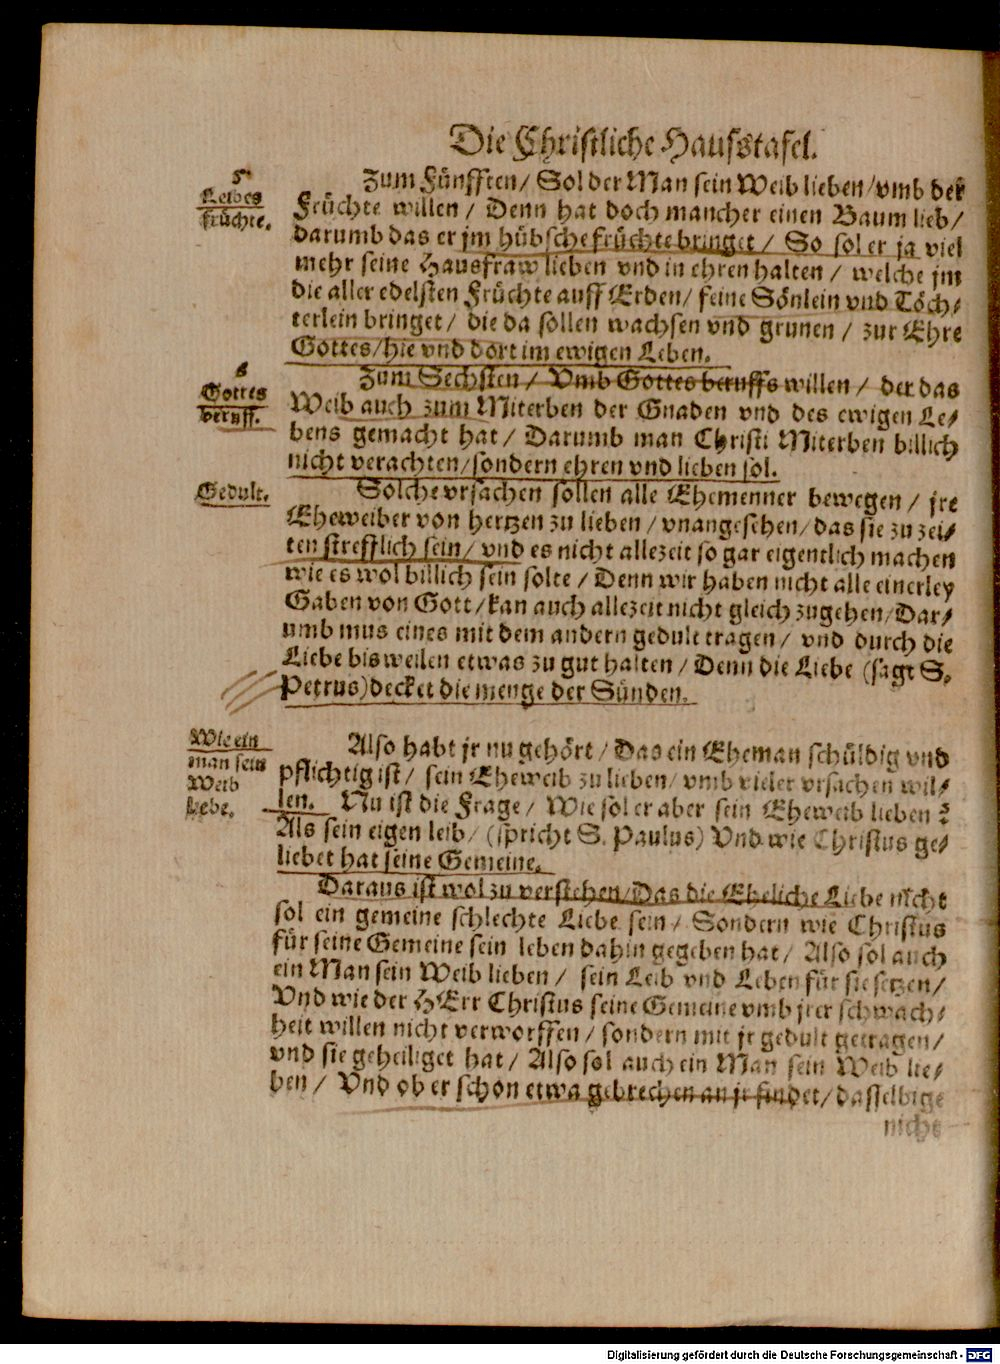 Die Christliche Hausstafel.
5
Leibes
früchte.
Zum Fünfften/ Sol der Man sein Weib lieben/ vmb der
Früchte willen/ Denn hat doch mancher einen Baum lieb/
darumb das er jm hübsche früchte bringet/ So sol er ja viel
mehr seine Hausfraw lieben vnd in ehren halten/ welche jm
die aller edelsten Früchte auff Erden/ feine Sönlein vnd Töch/
terlein bringet/ die da sollen wachsen vnd grunen/ zur Ehre
Gottes/ hie vnd dort im ewigen Leben.
6
Gottes
beruff.
Zum Sechsten/ Vmb Gottes beruffs willen/ der das
Weib auch zum Miterben der Gnaden vnd des ewigen Le/
bens gemacht hat/ Darumb man Christi Miterben billich
nicht verachten/ sondern ehren vnd lieben sol.
Gedult.
Solche vrsachen sollen alle Ehemenner bewegen/ jre
Eheweiber von hertzen zu lieben/ vnangesehen/ das sie zu zei/
ten strefflich sein/ vnd es nicht allezeit so gar eigentlich machen
wie es wol billich sein solte/ Denn wir haben nicht alle einerley
Gaben von Gott/ kan auch allezeit nicht gleich zugehen/ Dar/
umb mus eines mit dem andern gedult tragen/ vnd durch die
Liebe bisweilen etwas zu gut halten/ Denn die Liebe (sagt S.
Petrus) decket die menge der Sünden.
Wie ein
man sein
Weib
liebe.
Also habt jr nu gehört/ Das ein Eheman schüldig vnd
pflichtig ist/ sein Eheweib zu lieben/ vmb vieler vrsachen wil/
len. Nu ist die Frage/ Wie sol er aber sein Eheweib lieben?
Als sein eigen leib/ (spricht S. Paulus) Vnd wie Christus ge/
liebet hat seine Gemeine.
Daraus ist wol zu verstehen/ Das die Eheliche Liebe nicht
sol ein gemeine schlechte Liebe sein/ Sondern wie Christus
für seine Gemeine sein leben dahin gegeben hat/ Also sol auch
ein Man sein Weib lieben/ sein Leib vnd Leben für sie setzen/
Vnd wie der HErr Christus seine Gemeine vmb jrer schwach/
heit willen nicht verworffen/ sondern mit jr gedult getragen/
vnd sie geheiliget hat/ Also sol auch ein Man sein Weib lie/
ben/ Vnd ob er schon etwa gebrechen an jr findet/ dasselbige
nicht
Digitalisierung gefördert durch die Deutsche Forschungsgemeinschaft - DFG